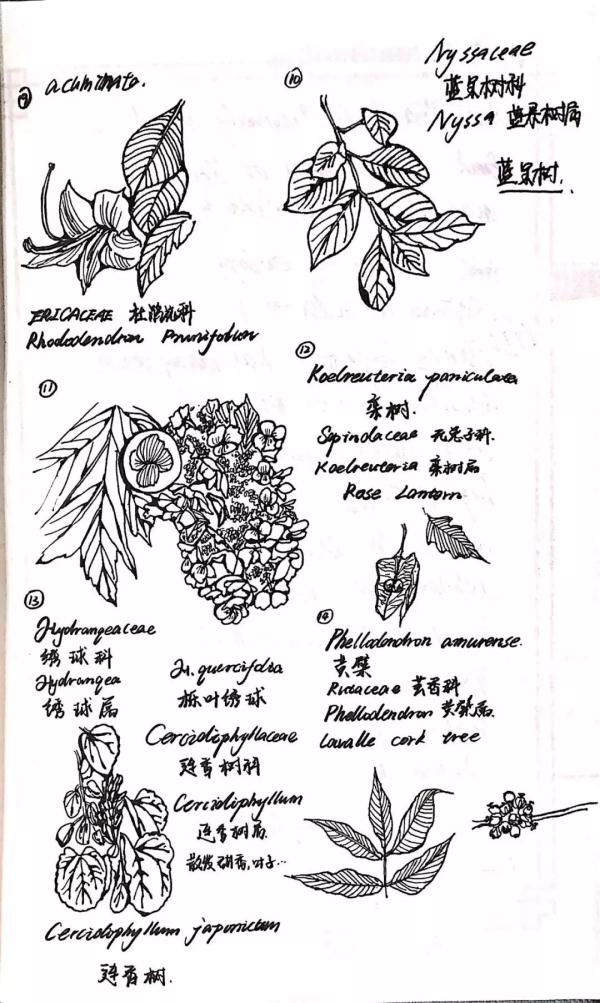 ⑨ acuminata.
ERICACEAE 杜鹃花科
Rhododendron Prunifolium
⑩
Nyssaceae
蓝果树科
Nyssa 蓝果树属
蓝果树.
⑪
⑫
Koelreuteria paniculata
栾树.
Sapindaceae 无患子科.
Koelreuteria 栾树属
Rose Lantern
⑬
Hydrangeaceae
绣球科
Hydrangea
绣球属
H. quercifolia
栎叶绣球
Cercidiphyllaceae
连香树科
Cercidiphyllum
连香树属.
Cercidiphyllum japonicum
连香树.
⑭
Phellodendron amurense.
黄檗
Rutaceae 芸香科
Phellodendron 黄檗属.
Lavalle cork tree